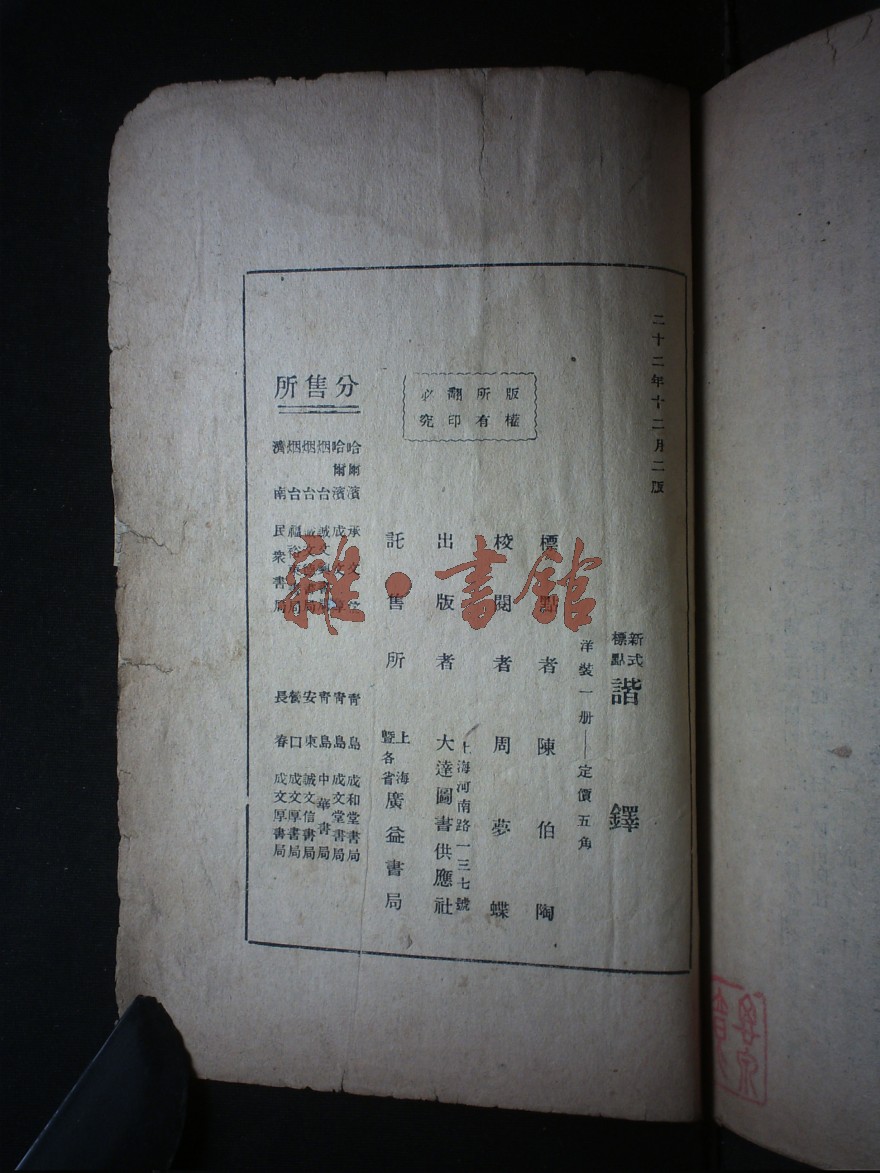 二十二年十二月二版
新式標點 諧鐸
洋裝一册——定價五角
標點者 陳伯陶
校閱者 周夢蝶
上海河南路一三七號
出版者 大達圖書供應社
託售所 上海暨各省 廣益書局
版權所有
翻印必究
分售所
哈爾濱 承文堂
哈爾濱 成文厚
烟台 誠文
烟台
烟台 福裕書局
濟南 民衆書局
青島 成和堂書局
青島 成文堂書局
青島 中華書局
安東 誠文信書局
營口 成文厚書局
長春 成文厚書局
雜·書館